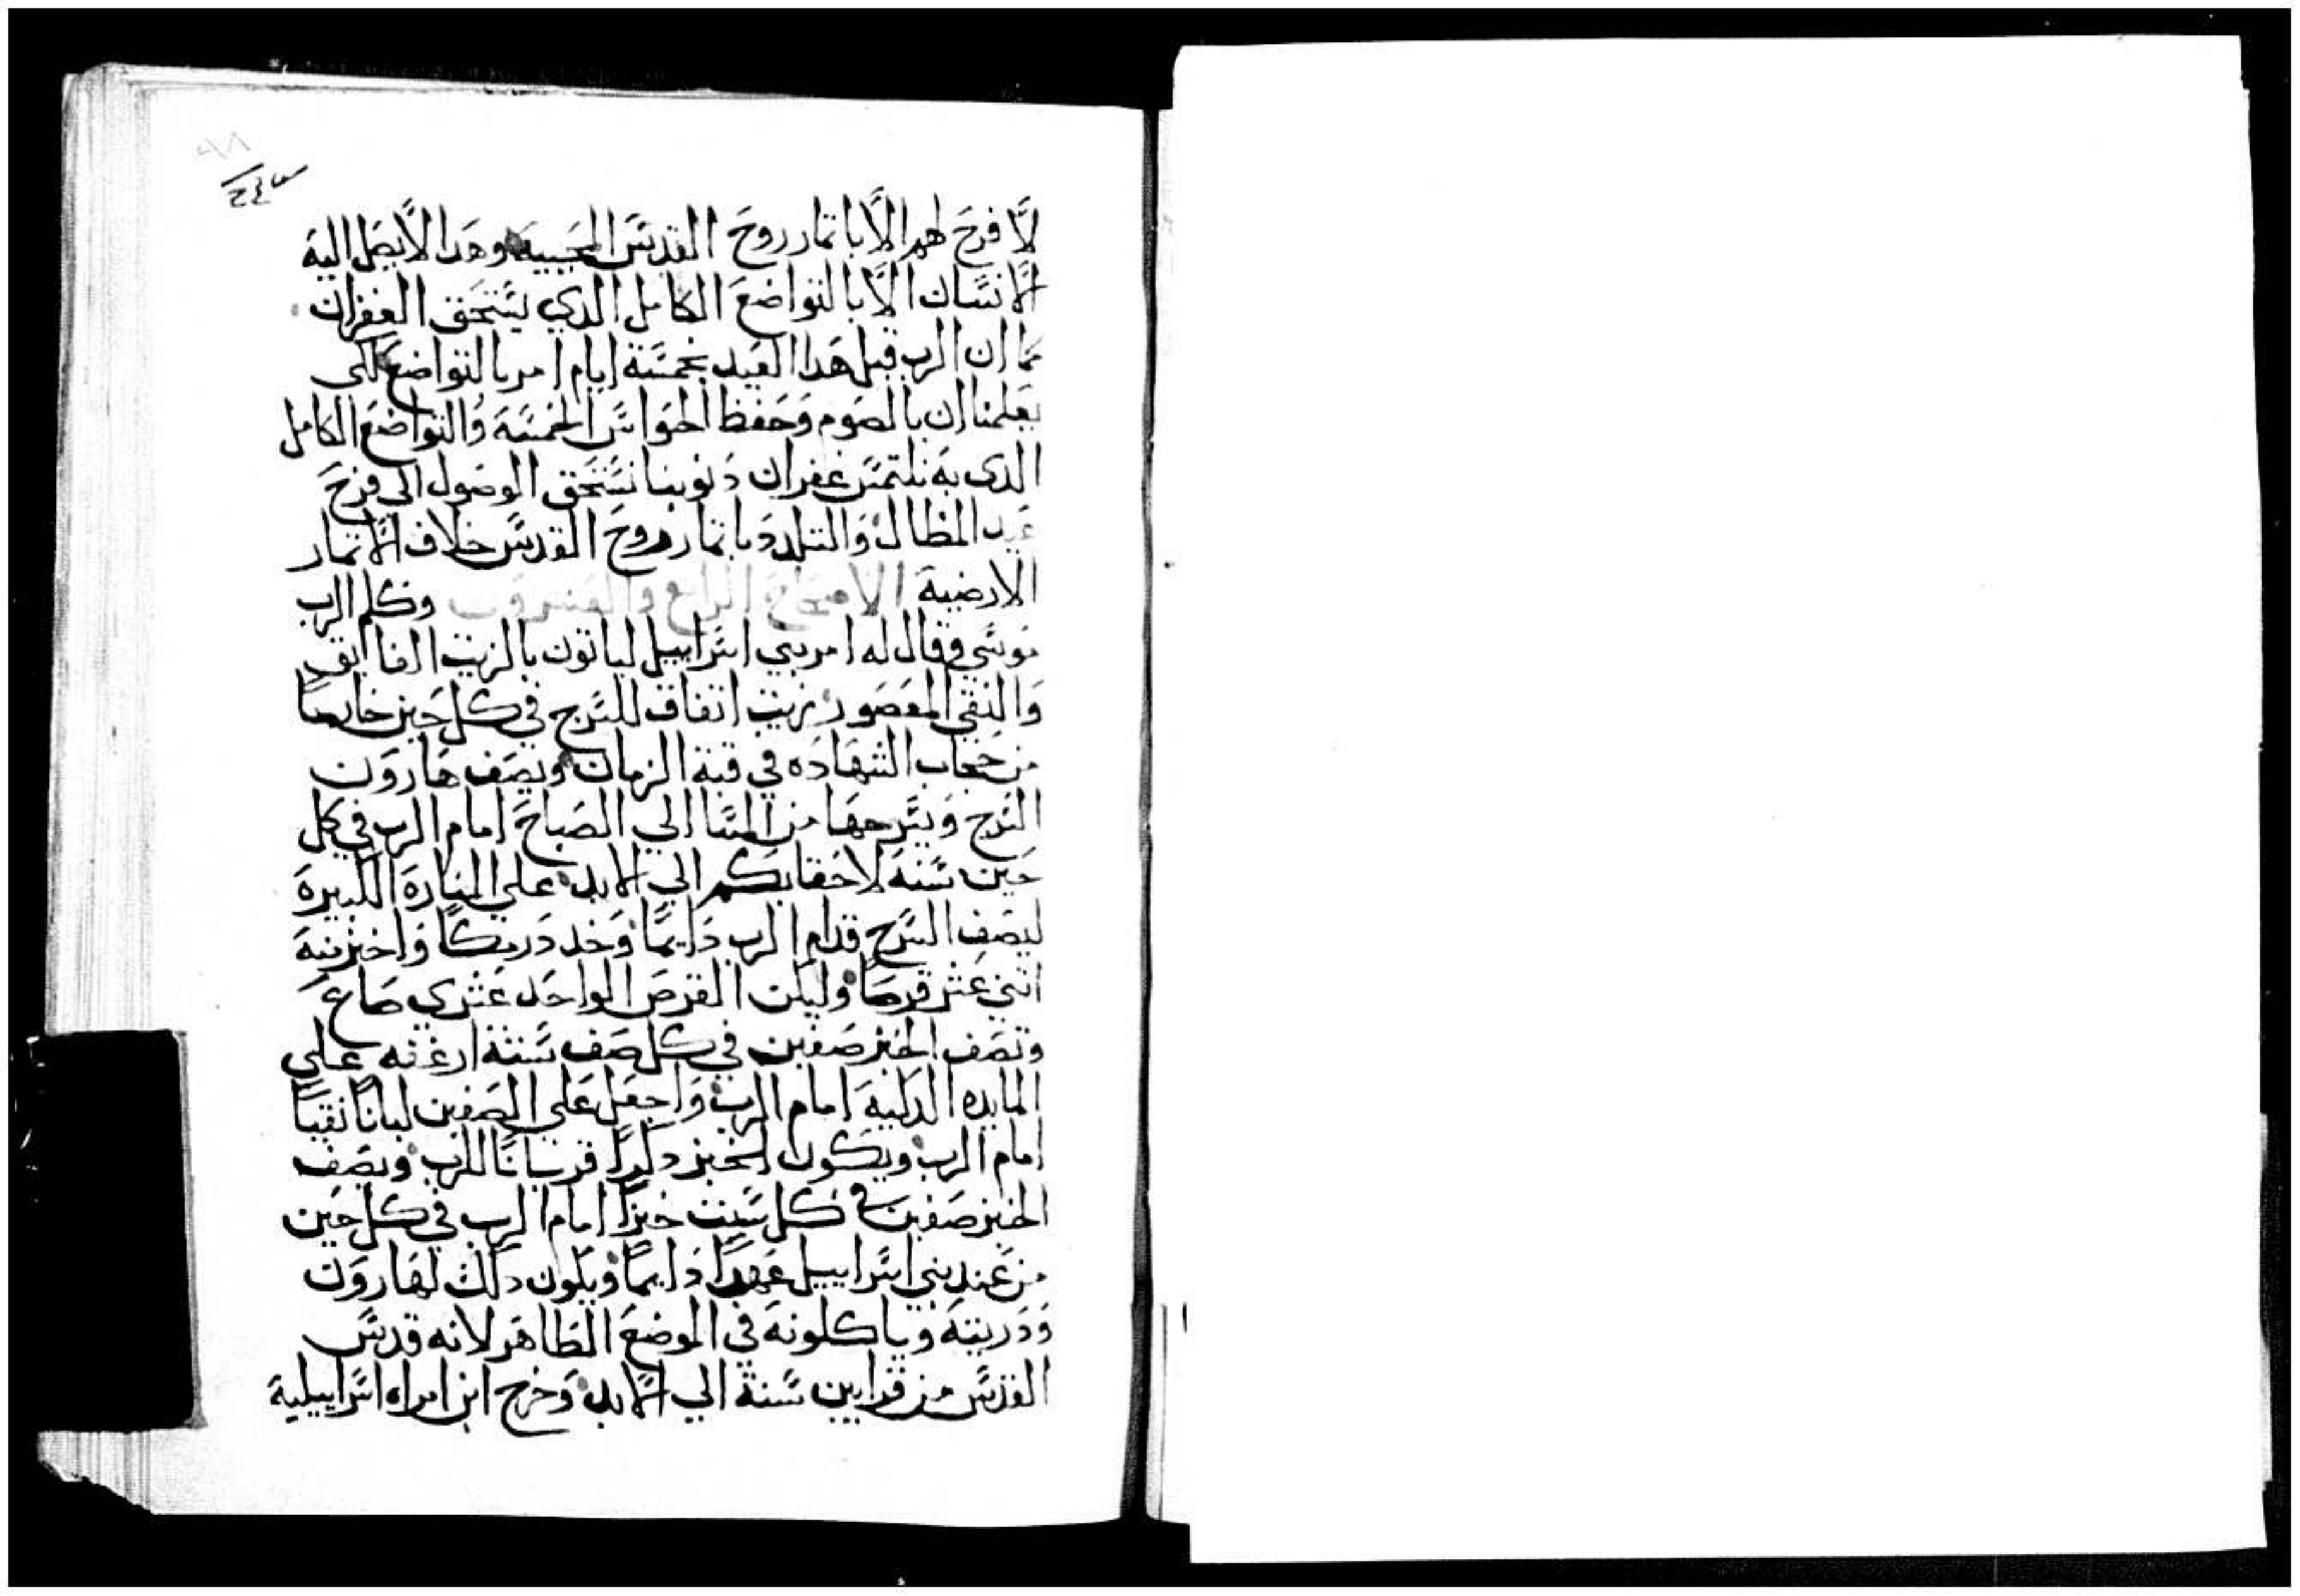 لا فرح لهم الا باتمار روح القدس المحييه وهدا لا يصل اليه
الانسان الا بالتواضع الكامل الدي يستحق الغفران
كما ان الرب قبل هدا العيد بخمسة ايام امر بالتواضع لكي
يعلمنا ان بالصوم وحفظ الحواس الخمسه والتواضع الكامل
الدي به نلتمس غفران دنوبنا نستحق الوصول الي فرح
عيد المظال والتلدد باتمار روح القدس خلاف الاتمار
الارضية الاصحاح الرابع والعشرون وكلم الرب
موسي وقال له امر بني اسراييل لياتون بالزيت الفايق
والنقي المعصور زيت اتفاق للسرج في كل حين خارجا
من حجاب الشهاده في قبة الزمان ويصف هارون
السرج ويسرجها من المسا الي الصباح امام الرب في كل
حين سنه لاحقابكم الي الابد علي المناره الكبيره
ليصف السرج قدام الرب دايما وخد درمكا واخبز منه
اتني عشر قرصا وليكن القرص الواحد عشري صاع
وتصف الخبز صفين في كل صف ستة ارغفه علي
المايده الدكيه امام الرب واجعل علي الصفين لبانا نقيا
امام الرب ويكون الخبز دكرا قربانا للرب ويصف
الخبز صفين في كل سبت خبزا امام الرب في كل حين
من عند بني اسراييل عهدا دايما ويكون دلك لهارون
ودريته وياكلونه في الموضع الطاهر لانه قدس
القدس من قرابين سنة الي الابد وخرج ابن امراه اسراييلية